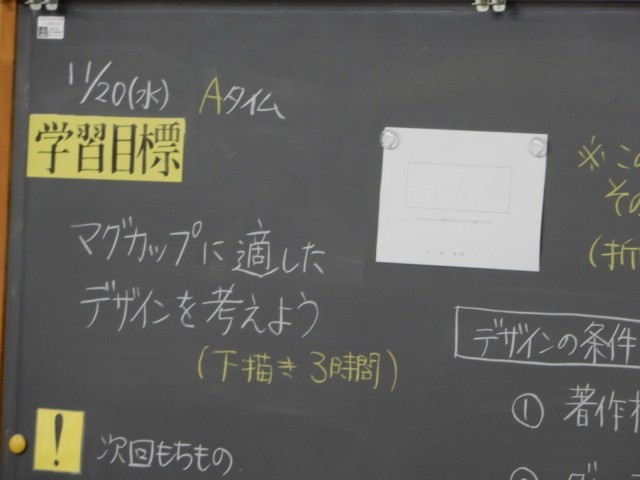 11/20(水) Aタイム
学習目標
マグカップに適した
デザインを考えよう
(下描き3時間)
!
次回もちもの
※こ
その
(折
デザインの条件
① 著作